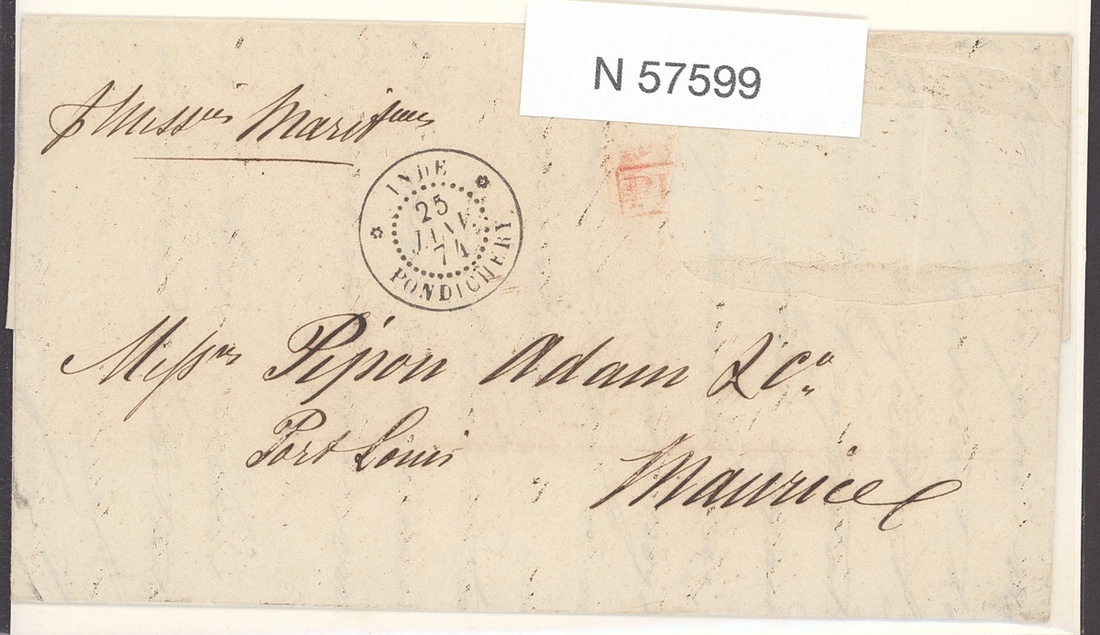 N 57599
p Messies Maritimes
INDE
25
JANV
74
PONDICHERY
Messrs Pipon Adam & Co
Port Louis
Maurice